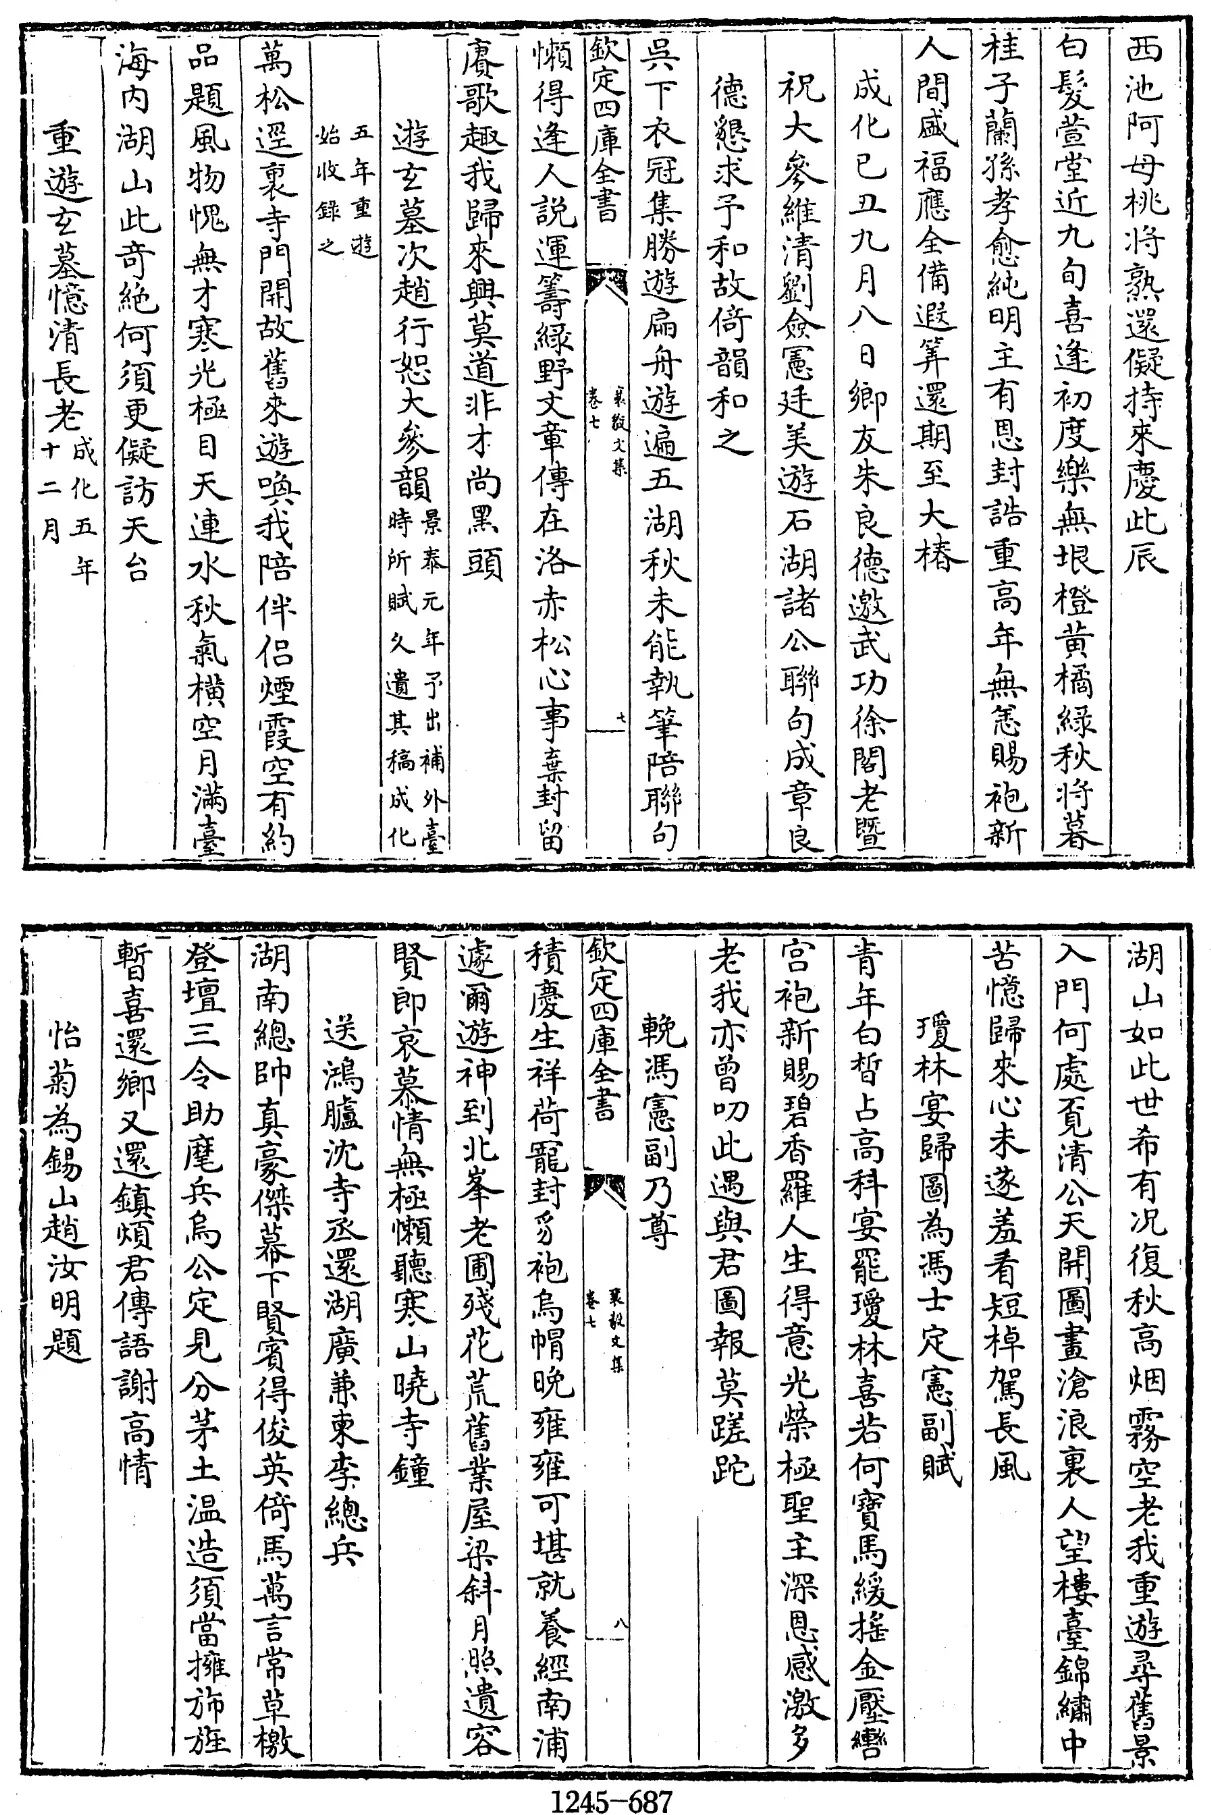 西池阿母桃将熟還儗持來慶此辰
白髮萱堂近九旬喜逢初度樂無垠橙黄橘綠秋将暮
桂子蘭孫孝愈純明主有恩封誥重高年無恙賜袍新
人間盛福應全備遐筭還期至大椿
成化已丑九月八日鄉友朱良德邀武功徐閣老暨
祝大參維清劉僉憲廷美遊石湖諸公聯句成章良
德懇求予和故倚韻和之
吳下衣冠集勝遊扁舟遊遍五湖秋未能執筆陪聯句
欽定四庫全書
襄毅文集
卷七
七
懶得逢人説運籌綠野文章傳在洛赤松心事棄封留
賡歌趣我歸來興莫道非才尚黑頭
遊玄墓次趙行恕大參韻
景泰元年予出補外臺
時所賦久遺其稿成化
五年重遊
始收録之
萬松逕裏寺門開故舊來遊喚我陪伴侣煙霞空有約
品題風物愧無才寒光極目天連水秋氣橫空月滿臺
海内湖山此奇絶何須更儗訪天台
重遊玄墓憶清長老
成化五年
十二月
湖山如此世希有况復秋高烟霧空老我重遊尋舊景
入門何處覔清公天開圖畫滄浪裏人望樓臺錦繡中
苦憶歸來心未遂羞看短棹駕長風
瓊林宴歸圖為馮士定憲副賦
青年白晳占高科宴罷瓊林喜若何寶馬緩搖金壓轡
宫袍新賜碧香羅人生得意光榮極聖主深恩感激多
老我亦曾叨此遇與君圖報莫蹉跎
輓馮憲副乃尊
欽定四庫全書
襄毅文集
卷七
八
積慶生祥荷寵封豸袍烏帽晚雍雍可堪就養經南浦
遽爾遊神到北峯老圃殘花荒舊業屋梁斜月照遺容
賢郎哀慕情無極懶聽寒山曉寺鐘
送鴻臚沈寺丞還湖廣兼柬李總兵
湖南總帥真豪傑幕下賢賓得俊英倚馬萬言常草檄
登壇三令助麾兵烏公定見分茅土温造須當擁斾旌
暫喜還鄉又還鎮煩君傳語謝高情
怡菊為錫山趙汝明題
1245-687